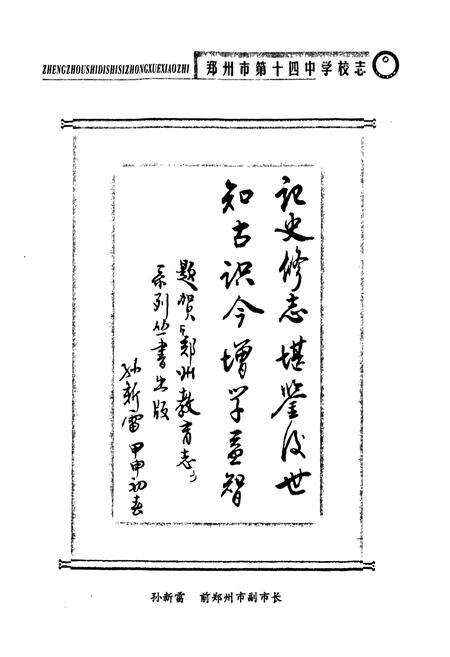 ZHENGZHOUSHIDISHISIZHONGXUEXIAOZHI
郑州市第十四中学校志
记史修志堪鉴后世
知古识今增学益智
题贺《郑州教育志》
系列丛书出版
孙新雷 甲申初春
孙新雷 前郑州市副市长